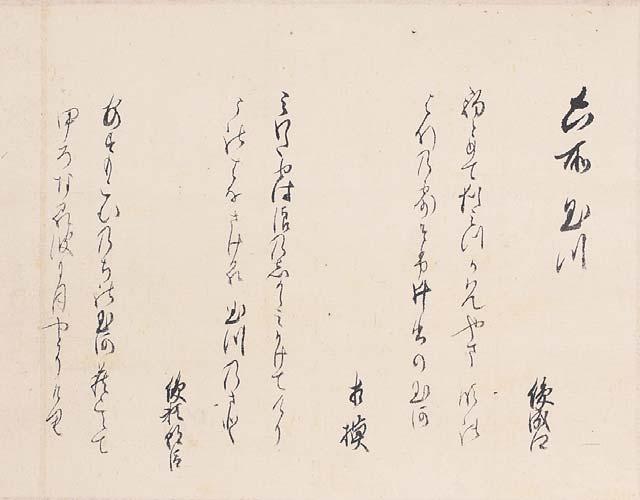 六所玉川
俊成卿
駒とめて猶水かはんやま吹の
はなの露そふ井出の玉河
相模
みわたせは浪のしからみかけてけり
うの花さける玉川のさと
俊頼朝臣
あすもこむのちの玉河萩こえて
いろなる波に月やとりけり